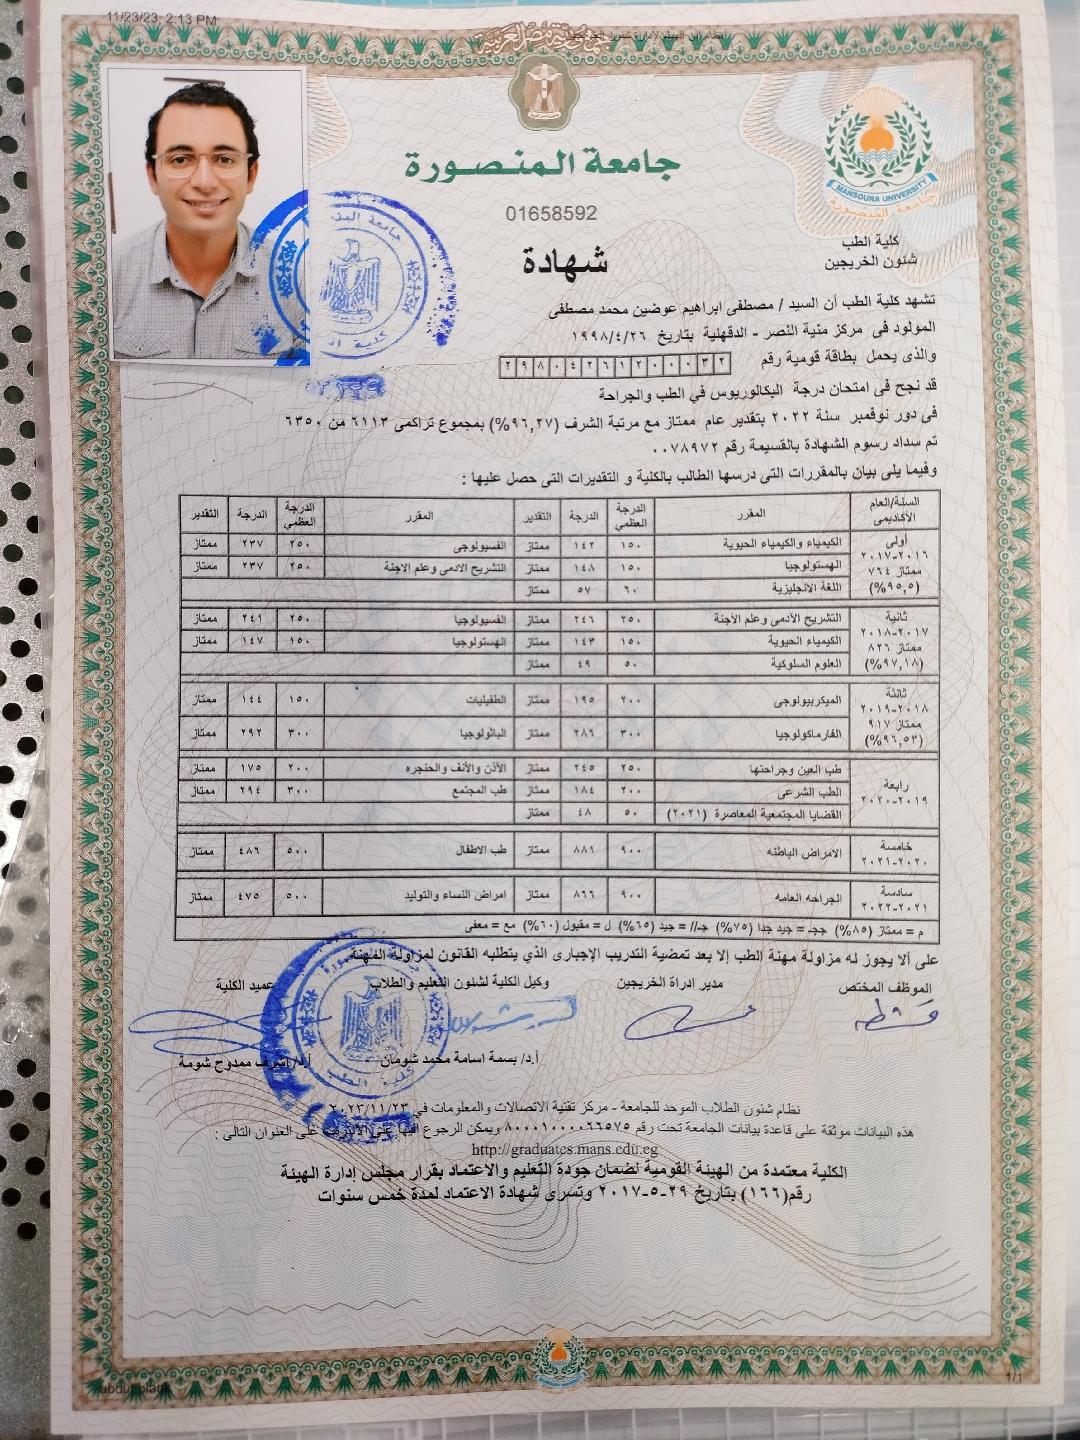 11/23/23, 2:13 PM
جامعة المنصورة
MANSOURA UNIVERSITY
جامعة المنصورة
01658592
كلية الطب
شئون الخريجين
شهادة
تشهد كلية الطب أن السيد / مصطفى ابراهيم عوضين محمد مصطفى
المولود فى مركز منية النصر - الدقهلية بتاريخ ١٩٩٨/٤/٢٦
والذى يحمل بطاقة قومية رقم ٢٩٨٠٤٢٦١٢٠٠٠٣٢
قد نجح فى امتحان درجة البكالوريوس في الطب والجراحة
فى دور نوفمبر سنة ٢٠٢٢ بتقدير عام ممتاز مع مرتبة الشرف (٩٦,٢٧%) بمجموع تراكمى ٦١١٣ من ٦٣٥٠
تم سداد رسوم الشهادة بالقسيمة رقم ٠٠٧٨٩٧٢
وفيما يلى بيان بالمقررات التى درسها الطالب بالكلية و التقديرات التى حصل عليها :
السنة/العام الأكاديمى المقرر الدرجة العظمي الدرجة التقدير المقرر الدرجة العظمي الدرجة التقدير
أولى ٢٠١٦-٢٠١٧ ممتاز ٧٦٤ (٩٥,٥%)
الكيمياء والكيمياء الحيوية ١٥٠ ١٤٢ ممتاز الفسيولوجى ٢٥٠ ٢٣٧ ممتاز
الهستولوجيا ١٥٠ ١٤٨ ممتاز التشريح الادمى وعلم الاجنة ٢٥٠ ٢٣٧ ممتاز
اللغة الانجليزية ٦٠ ٥٧ ممتاز
ثانية ٢٠١٧-٢٠١٨ ممتاز ٨٢٦ (٩٧,١٨%)
التشريح الأدمى وعلم الأجنة ٢٥٠ ٢٤٦ ممتاز الفسيولوجيا ٢٥٠ ٢٤١ ممتاز
الكيمياء الحيوية ١٥٠ ١٤٣ ممتاز الهستولوجيا ١٥٠ ١٤٧ ممتاز
العلوم السلوكية ٥٠ ٤٩ ممتاز
ثالثة ٢٠١٨-٢٠١٩ ممتاز ٩١٧ (٩٦,٥٣%)
الميكربيولوجى ٢٠٠ ١٩٥ ممتاز الطفيليات ١٥٠ ١٤٤ ممتاز
الفارماكولوجيا ٣٠٠ ٢٨٦ ممتاز الباثولوجيا ٣٠٠ ٢٩٢ ممتاز
رابعة ٢٠١٩-٢٠٢٠
طب العين وجراحتها ٢٥٠ ٢٤٥ ممتاز الأذن والأنف والحنجره ٢٠٠ ١٧٥ ممتاز
الطب الشرعى ٢٠٠ ١٨٤ ممتاز طب المجتمع ٣٠٠ ٢٩٤ ممتاز
القضايا المجتمعية المعاصرة (٢٠٢١) ٥٠ ٤٨ ممتاز
خامسة ٢٠٢٠-٢٠٢١ الامراض الباطنه ٩٠٠ ٨٨١ ممتاز طب الاطفال ٥٠٠ ٤٨٦ ممتاز
سادسة ٢٠٢١-٢٠٢٢ الجراحه العامه ٩٠٠ ٨٦٦ ممتاز امراض النساء والتوليد ٥٠٠ ٤٧٥ ممتاز
م = ممتاز (٨٥%) ججـ = جيد جدا (٧٥%) جـ// = جيد (٦٥%) ل = مقبول (٦٠%) مع = معفى
على ألا يجوز له مزاولة مهنة الطب إلا بعد تمضية التدريب الإجبارى الذي يتطلبه القانون لمزاولة المهنة
الموظف المختص مدير ادراة الخريجين وكيل الكلية لشئون التعليم والطلاب عميد الكلية
أ.د/ بسمة اسامة محمد شومان أ.د/ اشرف ممدوح شومة
نظام شئون الطلاب الموحد للجامعة - مركز تقنية الاتصالات والمعلومات في ٢٠٢٣/١١/٢٣
هذه البيانات موثقة على قاعدة بيانات الجامعة تحت رقم ٨٠٠٠١٠٠٠٠٦٦٥٧٥ ويمكن الرجوع اليها على الانترنت على العنوان التالى :
http://graduates.mans.edu.eg
الكلية معتمدة من الهيئة القومية لضمان جودة التعليم والاعتماد بقرار مجلس إدارة الهيئة
رقم(١٦٦) بتاريخ ٢٩-٥-٢٠١٧ وتسرى شهادة الاعتماد لمدة خمس سنوات
1/1